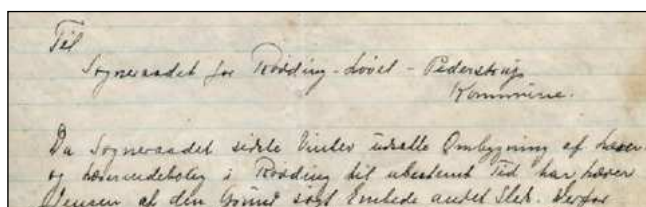 Til
Sogneraadet for Rødding-Løvel-Pederstrup
Kommune.
Da Sogneraadet sidste Vinter udsatte Ombygning af Lærer-
og Lærerindebolig i Rødding til ubestemt Tid har Lærer
Jensen af den Grund søgt Embede andet Sted. Derfor